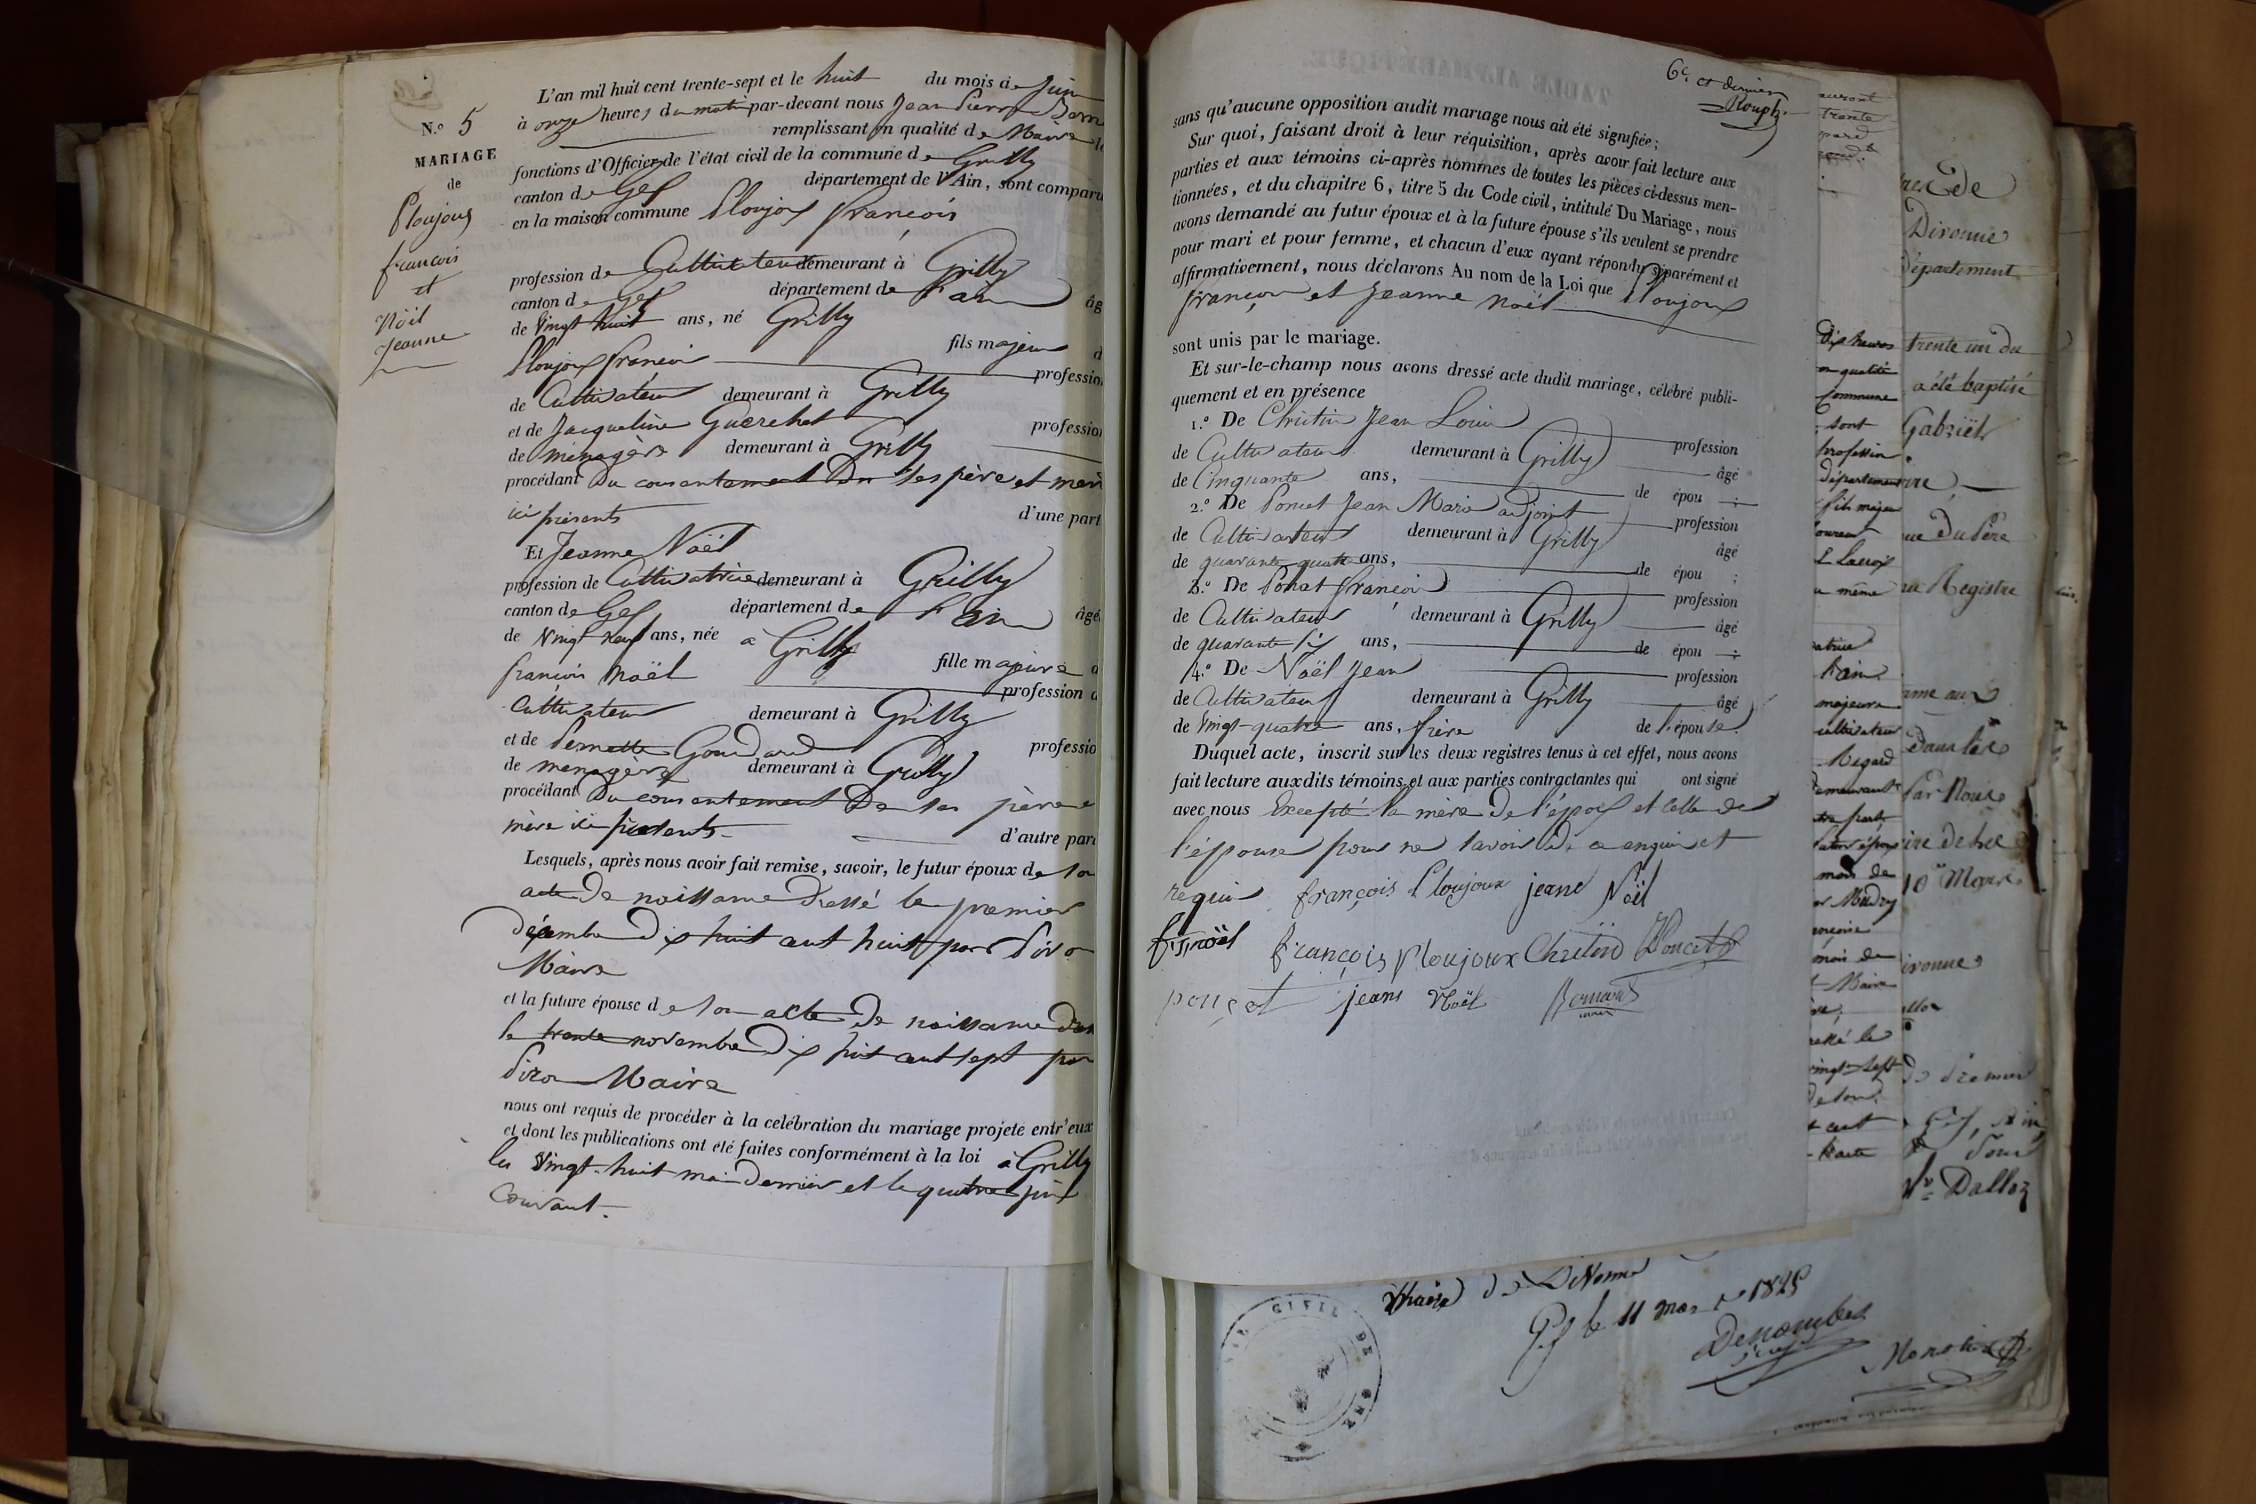 N.° 5
MARIAGE
de
Ploujoux
françois
et
Noël
Jeanne
L'an mil huit cent trente-sept et le huit du mois de Juin
à onze heures du matin par-devant nous Jean Pierre
remplissant en qualité de Maire
fonctions d'Officier de l'état civil de la commune de Grilly
canton de Gex département de l'Ain, sont comparu
en la maison commune Ploujoux françois
profession de Cultivateur demeurant à Grilly
canton de Gex département de l'ain âg
de Vingt huit ans, né Grilly
fils majeur d
Ploujoux françois profession
de Cultivateur demeurant à Grilly
et de Jacqueline profession
de menagère demeurant à Grilly
procédant du consentement de ses père et mère
ici présents d'une part
Et Jeanne Noël
profession de Cultivatrice demeurant à Grilly
canton de Gex département de l'ain âgé
de Vingt neuf ans, née a Grilly
fille majeure d
françois Noël profession d
Cultivateur demeurant à Grilly
et de Pernette Goudard profession
de menagère demeurant à Grilly
procédant du consentement de ses père
mère ici présents d'autre part
Lesquels, après nous avoir fait remise, savoir, le futur époux de son
acte de naissance dressé le premier
décembre dix huit cent huit par
Maire
et la future épouse de son acte de naissance
le trente novembre dix huit cent sept par
Maire
nous ont requis de procéder à la célébration du mariage projeté entr'eux
et dont les publications ont été faites conformément à la loi à Grilly
les Vingt-huit mai dernier et le quatre juin
courant.
6.e et dernier
sans qu'aucune opposition audit mariage nous ait été signifiée;
Sur quoi, faisant droit à leur réquisition, après avoir fait lecture aux
parties et aux témoins ci-après nommés de toutes les pièces ci-dessus men-
tionnées, et du chapitre 6, titre 5 du Code civil, intitulé Du Mariage, nous
avons demandé au futur époux et à la future épouse s'ils veulent se prendre
pour mari et pour femme, et chacun d'eux ayant répondu séparément et
affirmativement, nous déclarons Au nom de la Loi que Ploujoux
françois et Jeanne Noël
sont unis par le mariage.
Et sur-le-champ nous avons dressé acte dudit mariage, célébré publi-
quement et en présence
1.° De Christin Jean Louis profession
de Cultivateur demeurant à Grilly âgé
de Cinquante ans, de épou ;
2.° De Poncet Jean Marie adjoint profession
de Cultivateur demeurant à Grilly âgé
de quarante quatre ans, de épou ;
3.° De Ponçat françois profession
de Cultivateur demeurant à Grilly âgé
de quarante six ans, de épou ;
4.° De Noël Jean profession
de Cultivateur demeurant à Grilly âgé
de Vingt-quatre ans, frère de l'épouse.
Duquel acte, inscrit sur les deux registres tenus à cet effet, nous avons
fait lecture auxdits témoins et aux parties contractantes qui ont signé
avec nous Excepté la mère de l'époux et celle de
l'épouse pour ne savoir de ce enquis et
requis françois Ploujoux jeane Noël
f. noël françois Ploujoux Chrétin Poncet
ponçet jean Noël
auront
trente
Dix heures
en qualité
Commune
sont
profession
département
fils majeur
même
l'ain
majeure
cultivateur
Regard
mois de
mois de
Maire
vingt-sept
cent
Divonne
Département
trente un du
a été baptisé
Gabriël
Registre
Divonne
Dalloz
Maire de Divonne
le 11 mars 1825
CIVIL DE GEX